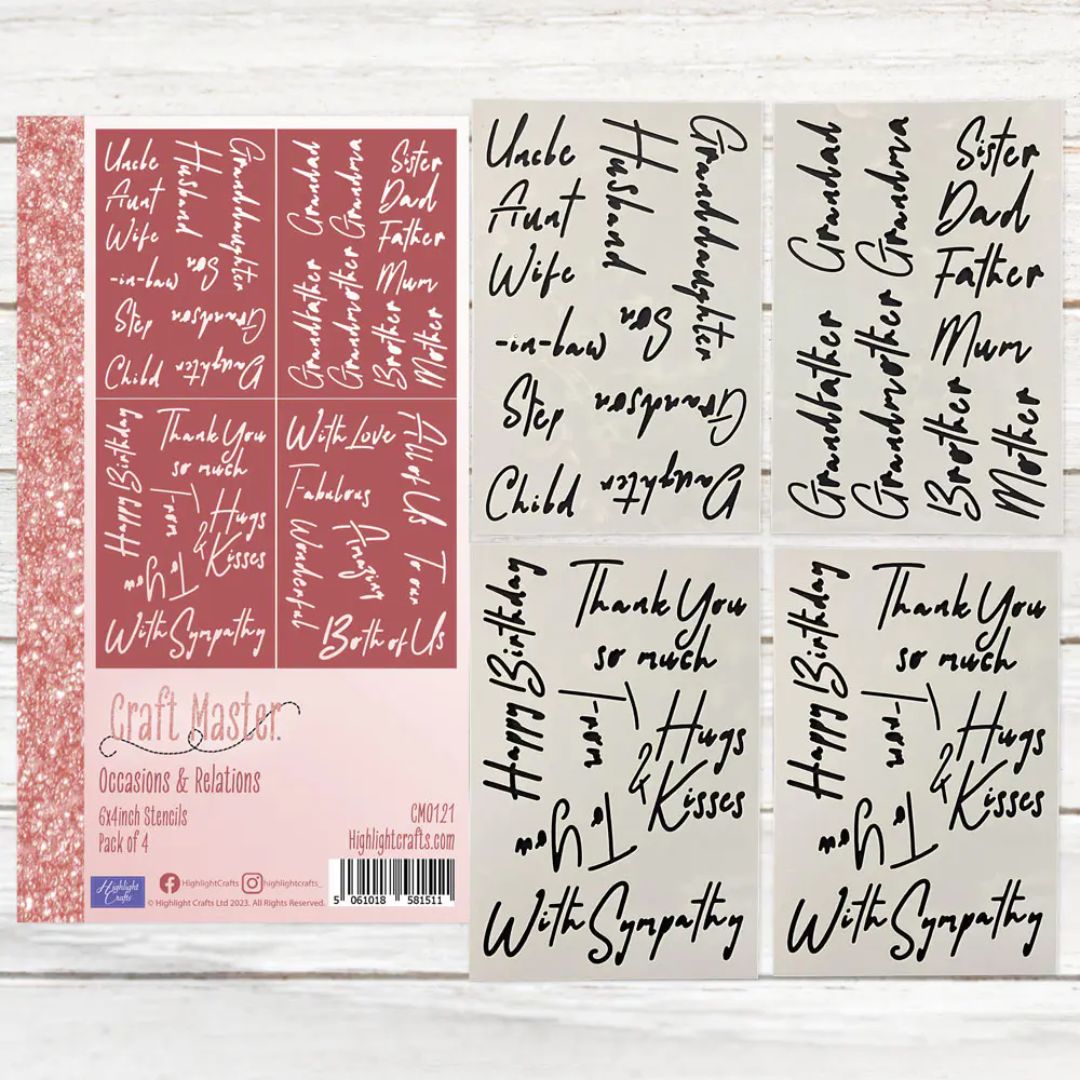 Uncle
Aunt
Wife
-in-law
Step
Child
Husband
Son
Granddaughter
Grandson
Daughter
Grandfather Grandad
Grandmother Grandma
Brother
Mother
Sister
Dad
Father
Mum
Happy Birthday
Thank You
so much
From
Hugs
& Kisses
To You
With Sympathy
With Love
Fabulous
Wonderful
Amazing
All of Us
To our
Both of Us
Craft Master
Occasions & Relations
6x4inch Stencils
Pack of 4
CM0121
Highlightcrafts.com
Highlight
Crafts
HighlightCrafts highlightcrafts_
© Highlight Crafts Ltd 2023. All Rights Reserved.
5 061018 581511
Uncle
Aunt
Wife
-in-law
Step
Child
Husband
Son
Granddaughter
Grandson
Daughter
Grandfather Grandad
Grandmother Grandma
Brother
Mother
Sister
Dad
Father
Mum
Happy Birthday
Thank You
so much
From
Hugs
& Kisses
To You
With Sympathy
Happy Birthday
Thank You
so much
From
Hugs
& Kisses
To You
With Sympathy